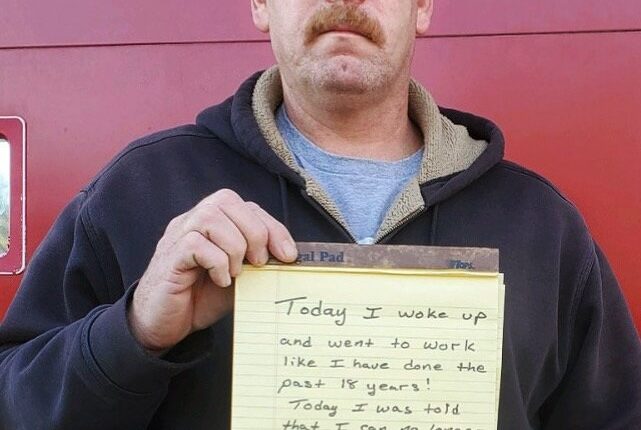 gal Pad
Tops
Today I woke up
and went to work
like I have done the
past 18 years!
Today I was told
that I can no longer